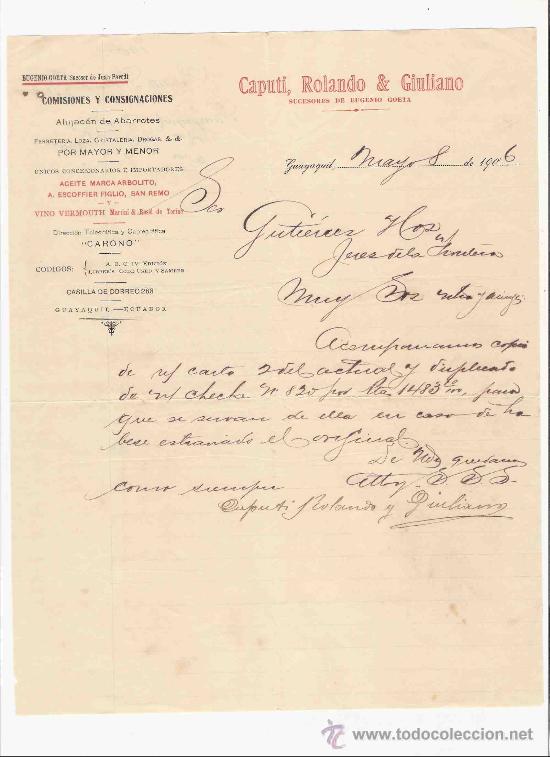 EUGENIO GOETA Sucesor de Juan Puvedi
COMISIONES Y CONSIGNACIONES
Almacén de Abarrotes
FERRETERIA, LOZA, CRISTALERIA, DROGAS, &. &.
POR MAYOR Y MENOR
UNICOS CONCESIONARIOS E IMPORTADORES
ACEITE MARCA ARBOLITO,
A. ESCOFFIER FIGLIO, SAN REMO
— Y —
VINO VERMOUTH Martini & Rossi de Torino
Dirección Telegráfica y Cablegráfica
"CARONO"
CODIGOS: A. B. C. IV EDICIÓN
LIEBER'S CODE USED Y SAMPER
CASILLA DE CORREO 268
GUAYAQUIL—ECUADOR
Caputi, Rolando & Giuliano
SUCESORES DE EUGENIO GOETA
Guayaquil, Mayo 8 de 1906
Srs
Gutiérrez Hos
Jerez de la Frontera
Muy Srs
Acompanamos copia
de n/ carta 2 del actual y duplicado
de n/ checke Nº 820 por 1483, para
que se sirvan de ella en caso de ha
bese estraviado el original.
De Uds quedamos
como siempre Atty S S S.
Caputi Rolando y Giuliano
www.todocoleccion.net